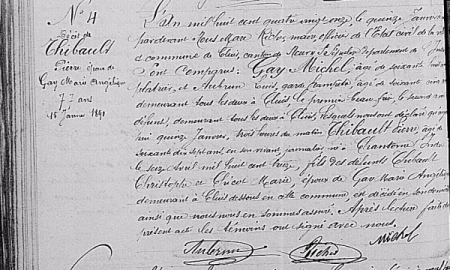 N° 4
Décès de
Thibault
Pierre époux de
Gay Marie Angélique
77 ans
15 Janvier 1891
L'An mil huit cent quatre vingt onze, le quinze Janvier
pardevant Nous maire, officier de l'Etat civil de la
commune de Cluis, canton de Neuvy St Sépulcre, département de
sont comparus : Gay Michel, âgé de soixante
plâtrier, et Aubrun Louis, garde champêtre, âgé de soixante
demeurant tous les deux à Cluis, le premier beau frère, le second
défunt, demeurant tous les deux à Cluis, lesquels nous ont déclaré
hui quinze Janvier, trois heures du matin Thibault Pierre, âgé de
soixante dix sept ans, en son vivant journalier, né à Chantome Indre
le seize Avril mil huit cent treize, fils des défunts Thibault
Christophe et Marie, époux de Gay Marie Angélique
demeurant à Cluis dessous en cette commune, est décédé en son domicile
ainsi que nous nous en sommes assuré. Après lecture faite du
présent acte les témoins ont signé avec nous.
Aubrun
Michel